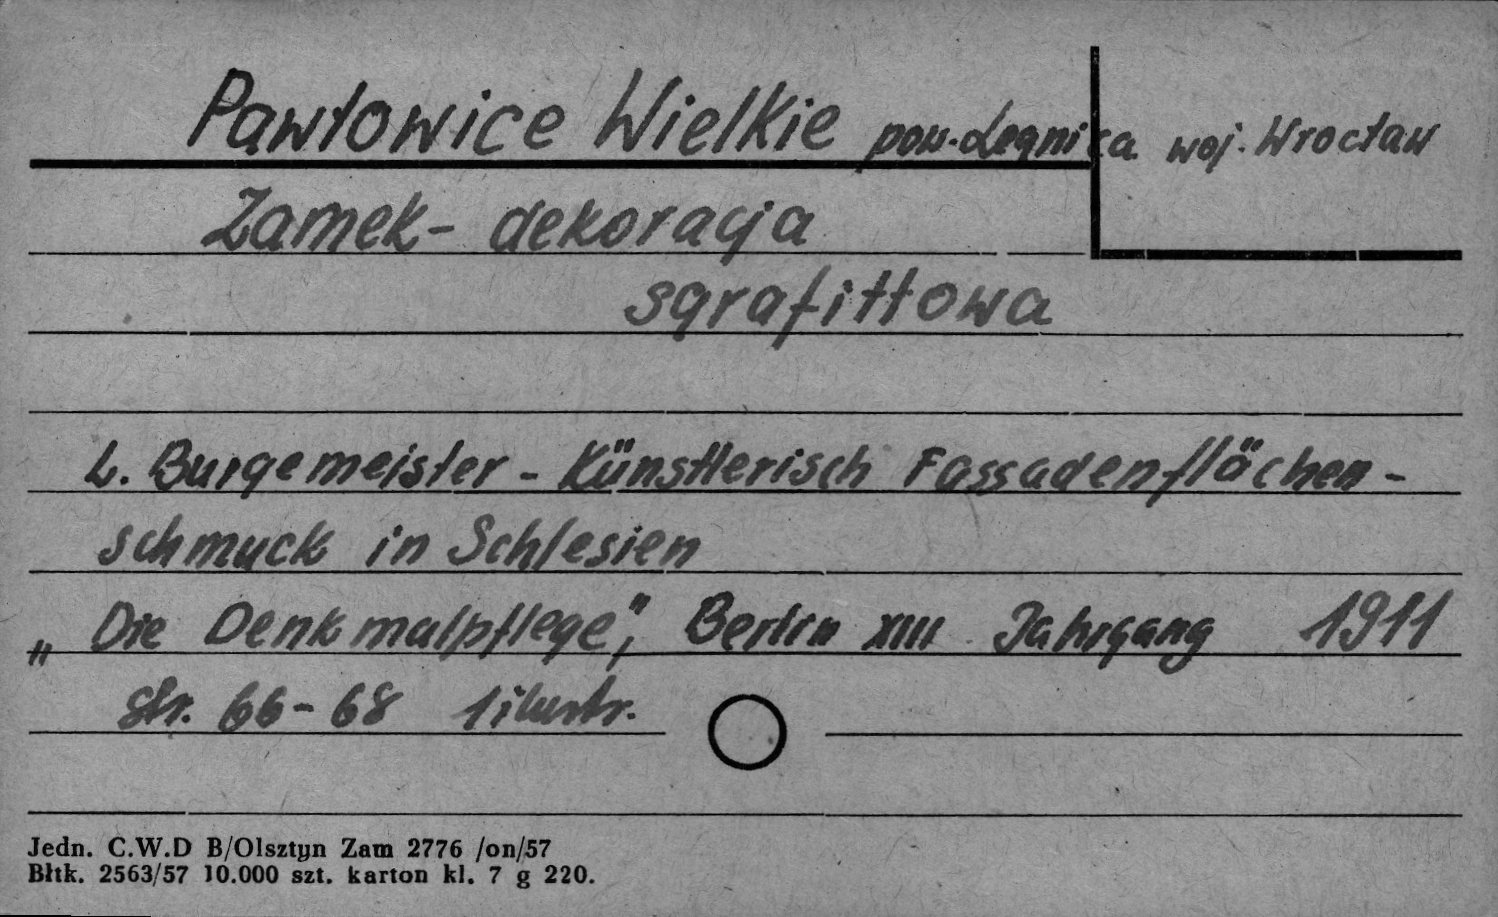 Pawłowice Wielkie pow. Legnica woj. Wrocław
Zamek - dekoracja
sgrafittowa
L. Burgemeister - Künstlerisch Fassadenflächen-
schmuck in Schlesien
„Die Denkmalpflege", Berlin XIII Jahrgang 1911
str. 66-68 1 ilustr.
Jedn. C.W.D B/Olsztyn Zam 2776 /on/57
Błtk. 2563/57 10.000 szt. karton kl. 7 g 220.